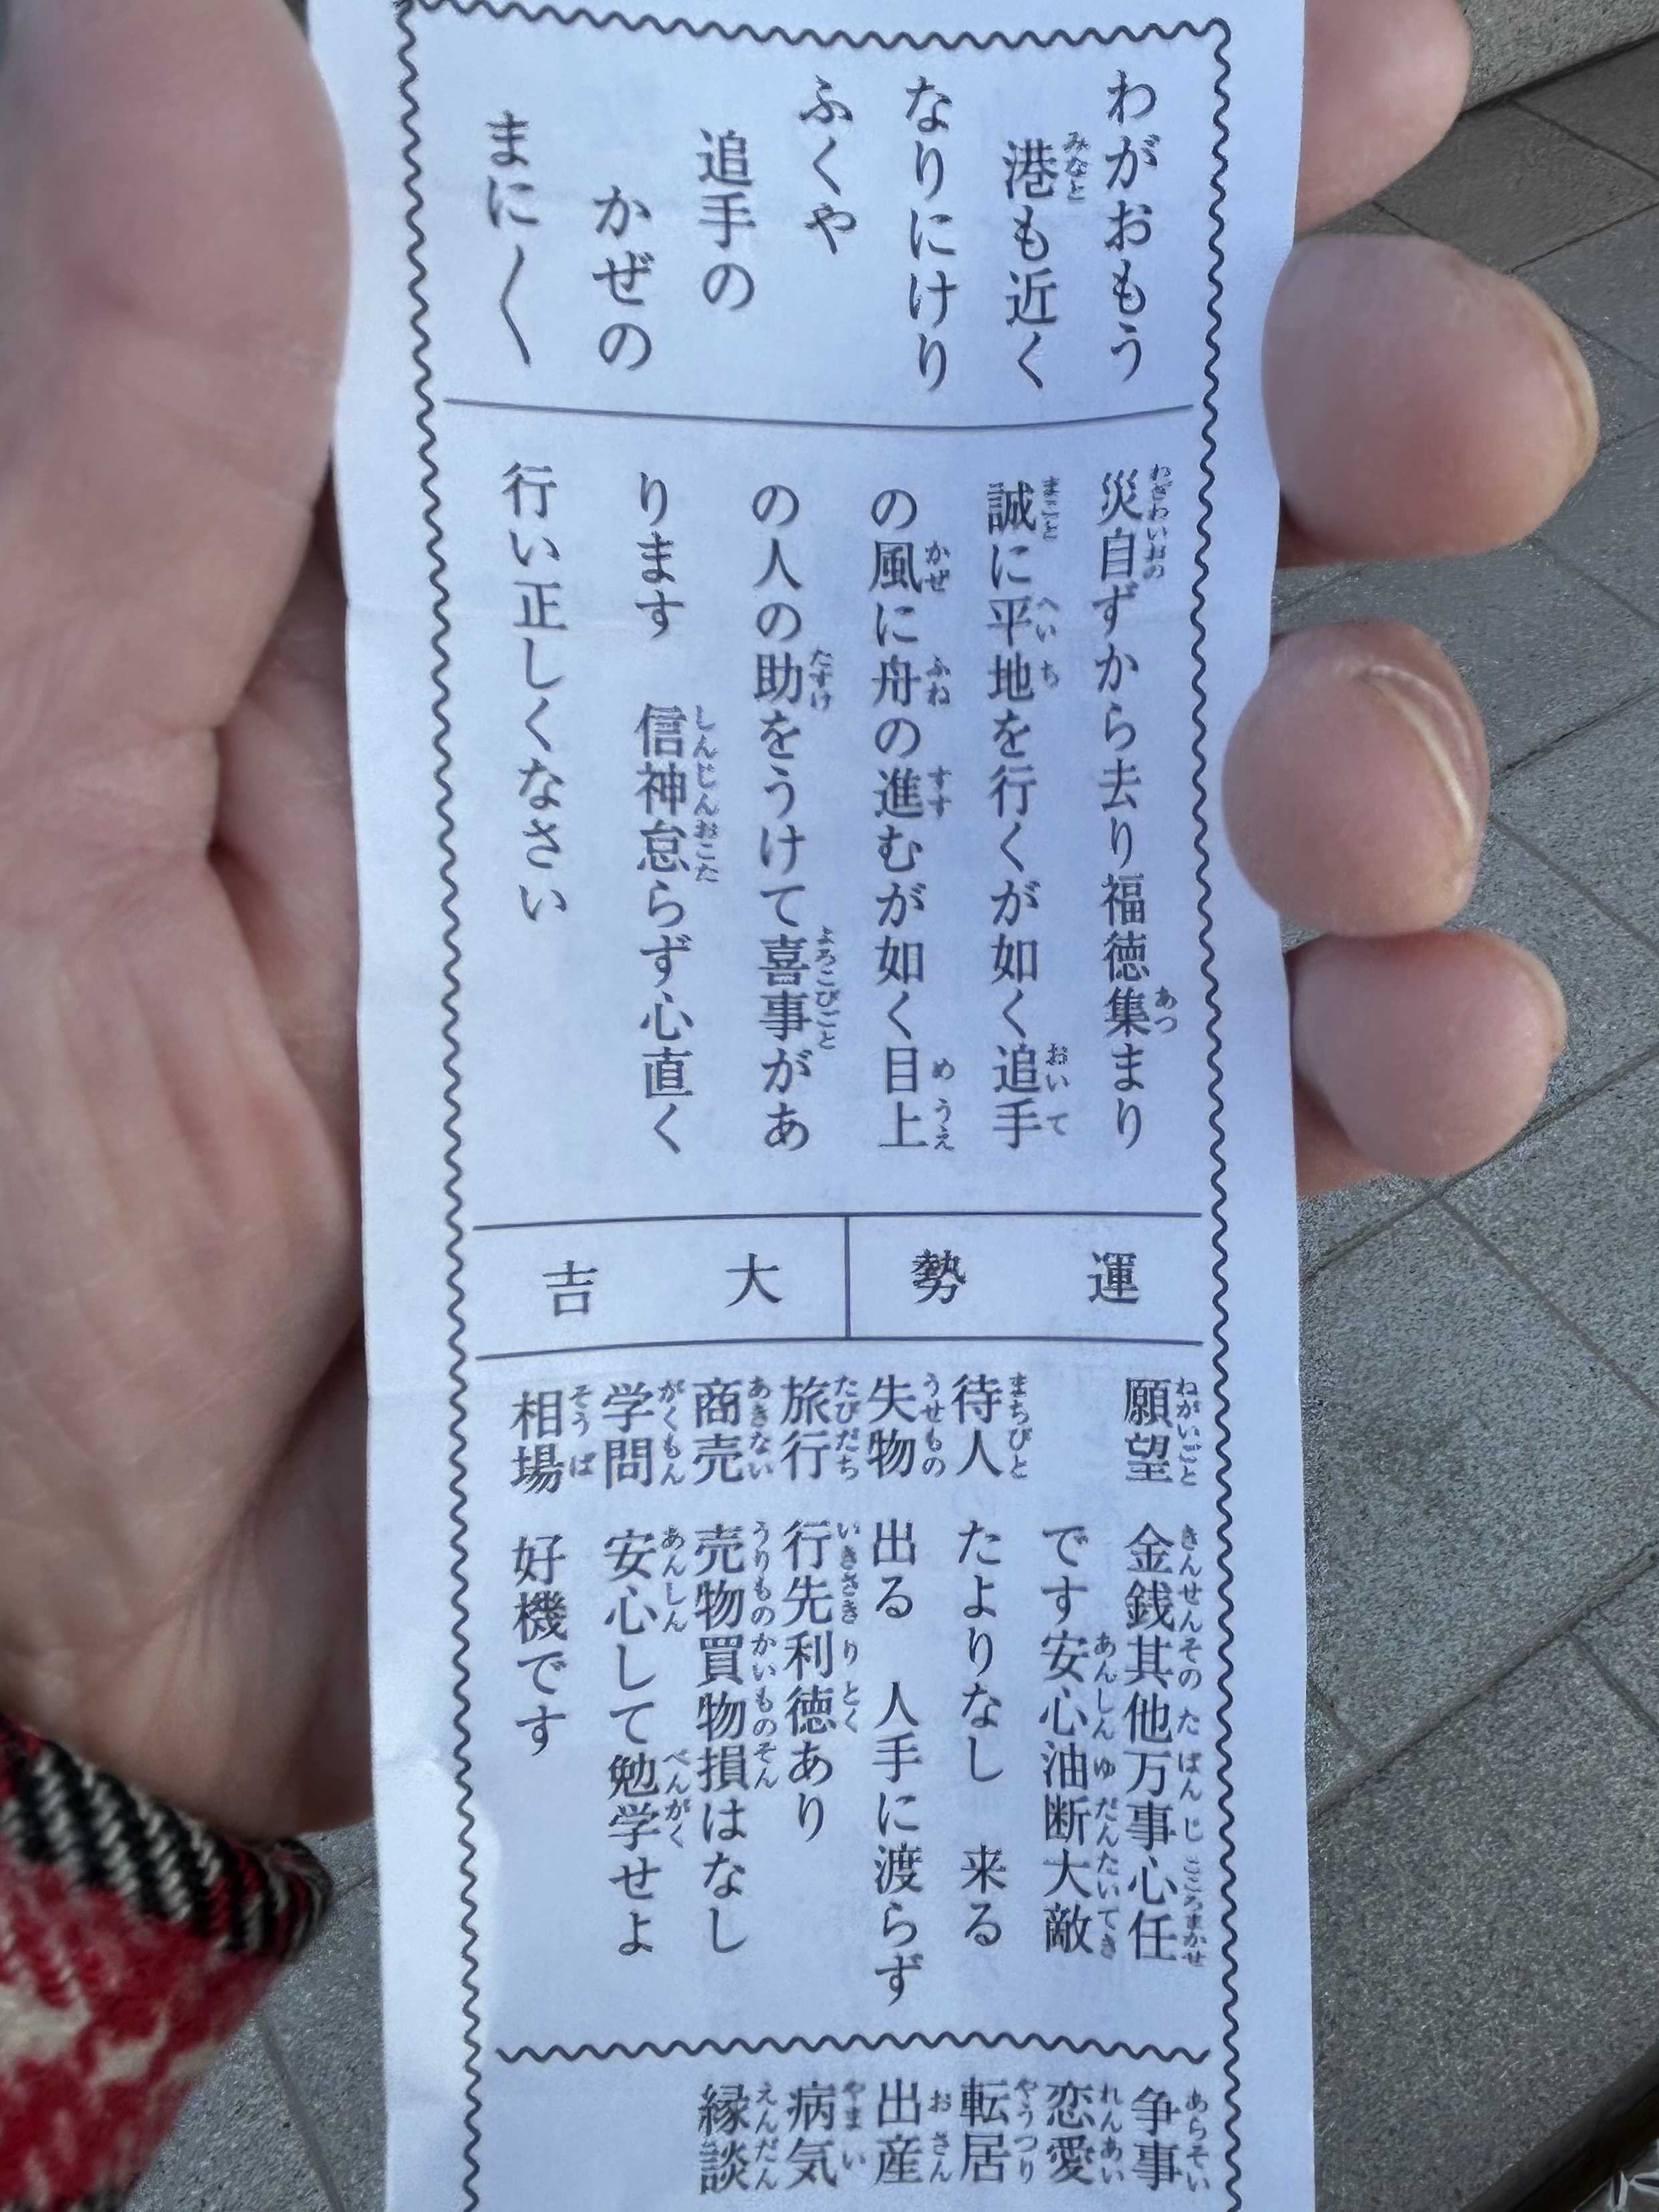 わがおもう
港も近く
なりにけり
ふくや
追手の
かぜの
まに〱
災自ずから去り福徳集まり
誠に平地を行くが如く追手
の風に舟の進むが如く目上
の人の助をうけて喜事があ
ります 信神怠らず心直く
行い正しくなさい
運勢 大吉
願望 金銭其他万事心任
です安心油断大敵
待人 たよりなし 来る
失物 出る 人手に渡らず
旅行 行先利徳あり
商売 売物買物損はなし
学問 安心して勉学せよ
相場 好機です
争事
恋愛
転居
出産
病気
縁談